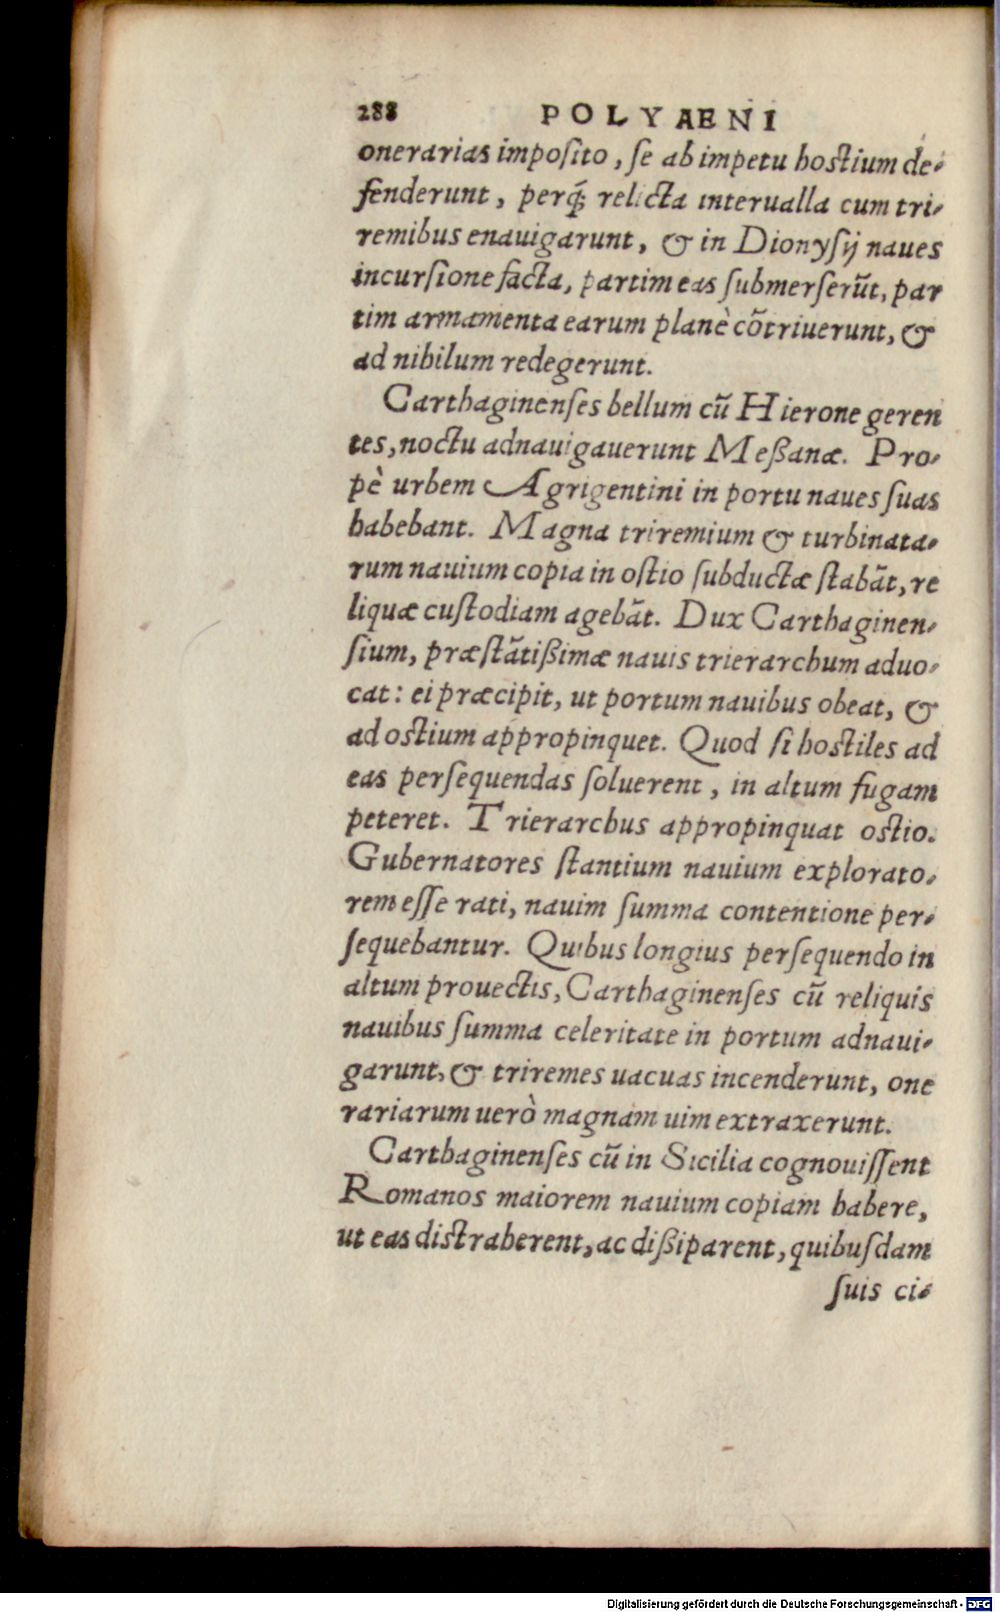 288 POLYAENI
onerarias imposito, se ab impetu hostium de-
fenderunt, perq́; relicta interualla cum tri-
remibus enauigarunt, & in Dionysij naues
incursione facta, partim eas submerserūt, par
tim armamenta earum planè cōtriuerunt, &
ad nihilum redegerunt.
Carthaginenses bellum cū Hierone geren
tes, noctu adnauigauerunt Meßanæ. Pro-
pè urbem Agrigentini in portu naues suas
habebant. Magna triremium & turbinata-
rum nauium copia in ostio subductæ stabāt, re
liquæ custodiam agebāt. Dux Carthaginen-
sium, præstātißimæ nauis trierarchum aduo-
cat: ei præcipit, ut portum nauibus obeat, &
ad ostium appropinquet. Quod si hostiles ad
eas persequendas soluerent, in altum fugam
peteret. Trierarchus appropinquat ostio.
Gubernatores stantium nauium explorato-
rem esse rati, nauim summa contentione per-
sequebantur. Quibus longius persequendo in
altum prouectis, Carthaginenses cū reliquis
nauibus summa celeritate in portum adnaui-
garunt, & triremes uacuas incenderunt, one
rariarum uerò magnam uim extraxerunt.
Carthaginenses cū in Sicilia cognouissent
Romanos maiorem nauium copiam habere,
ut eas distraherent, ac dißiparent, quibusdam
suis ci-
Digitalisierung gefördert durch die Deutsche Forschungsgemeinschaft - DFG